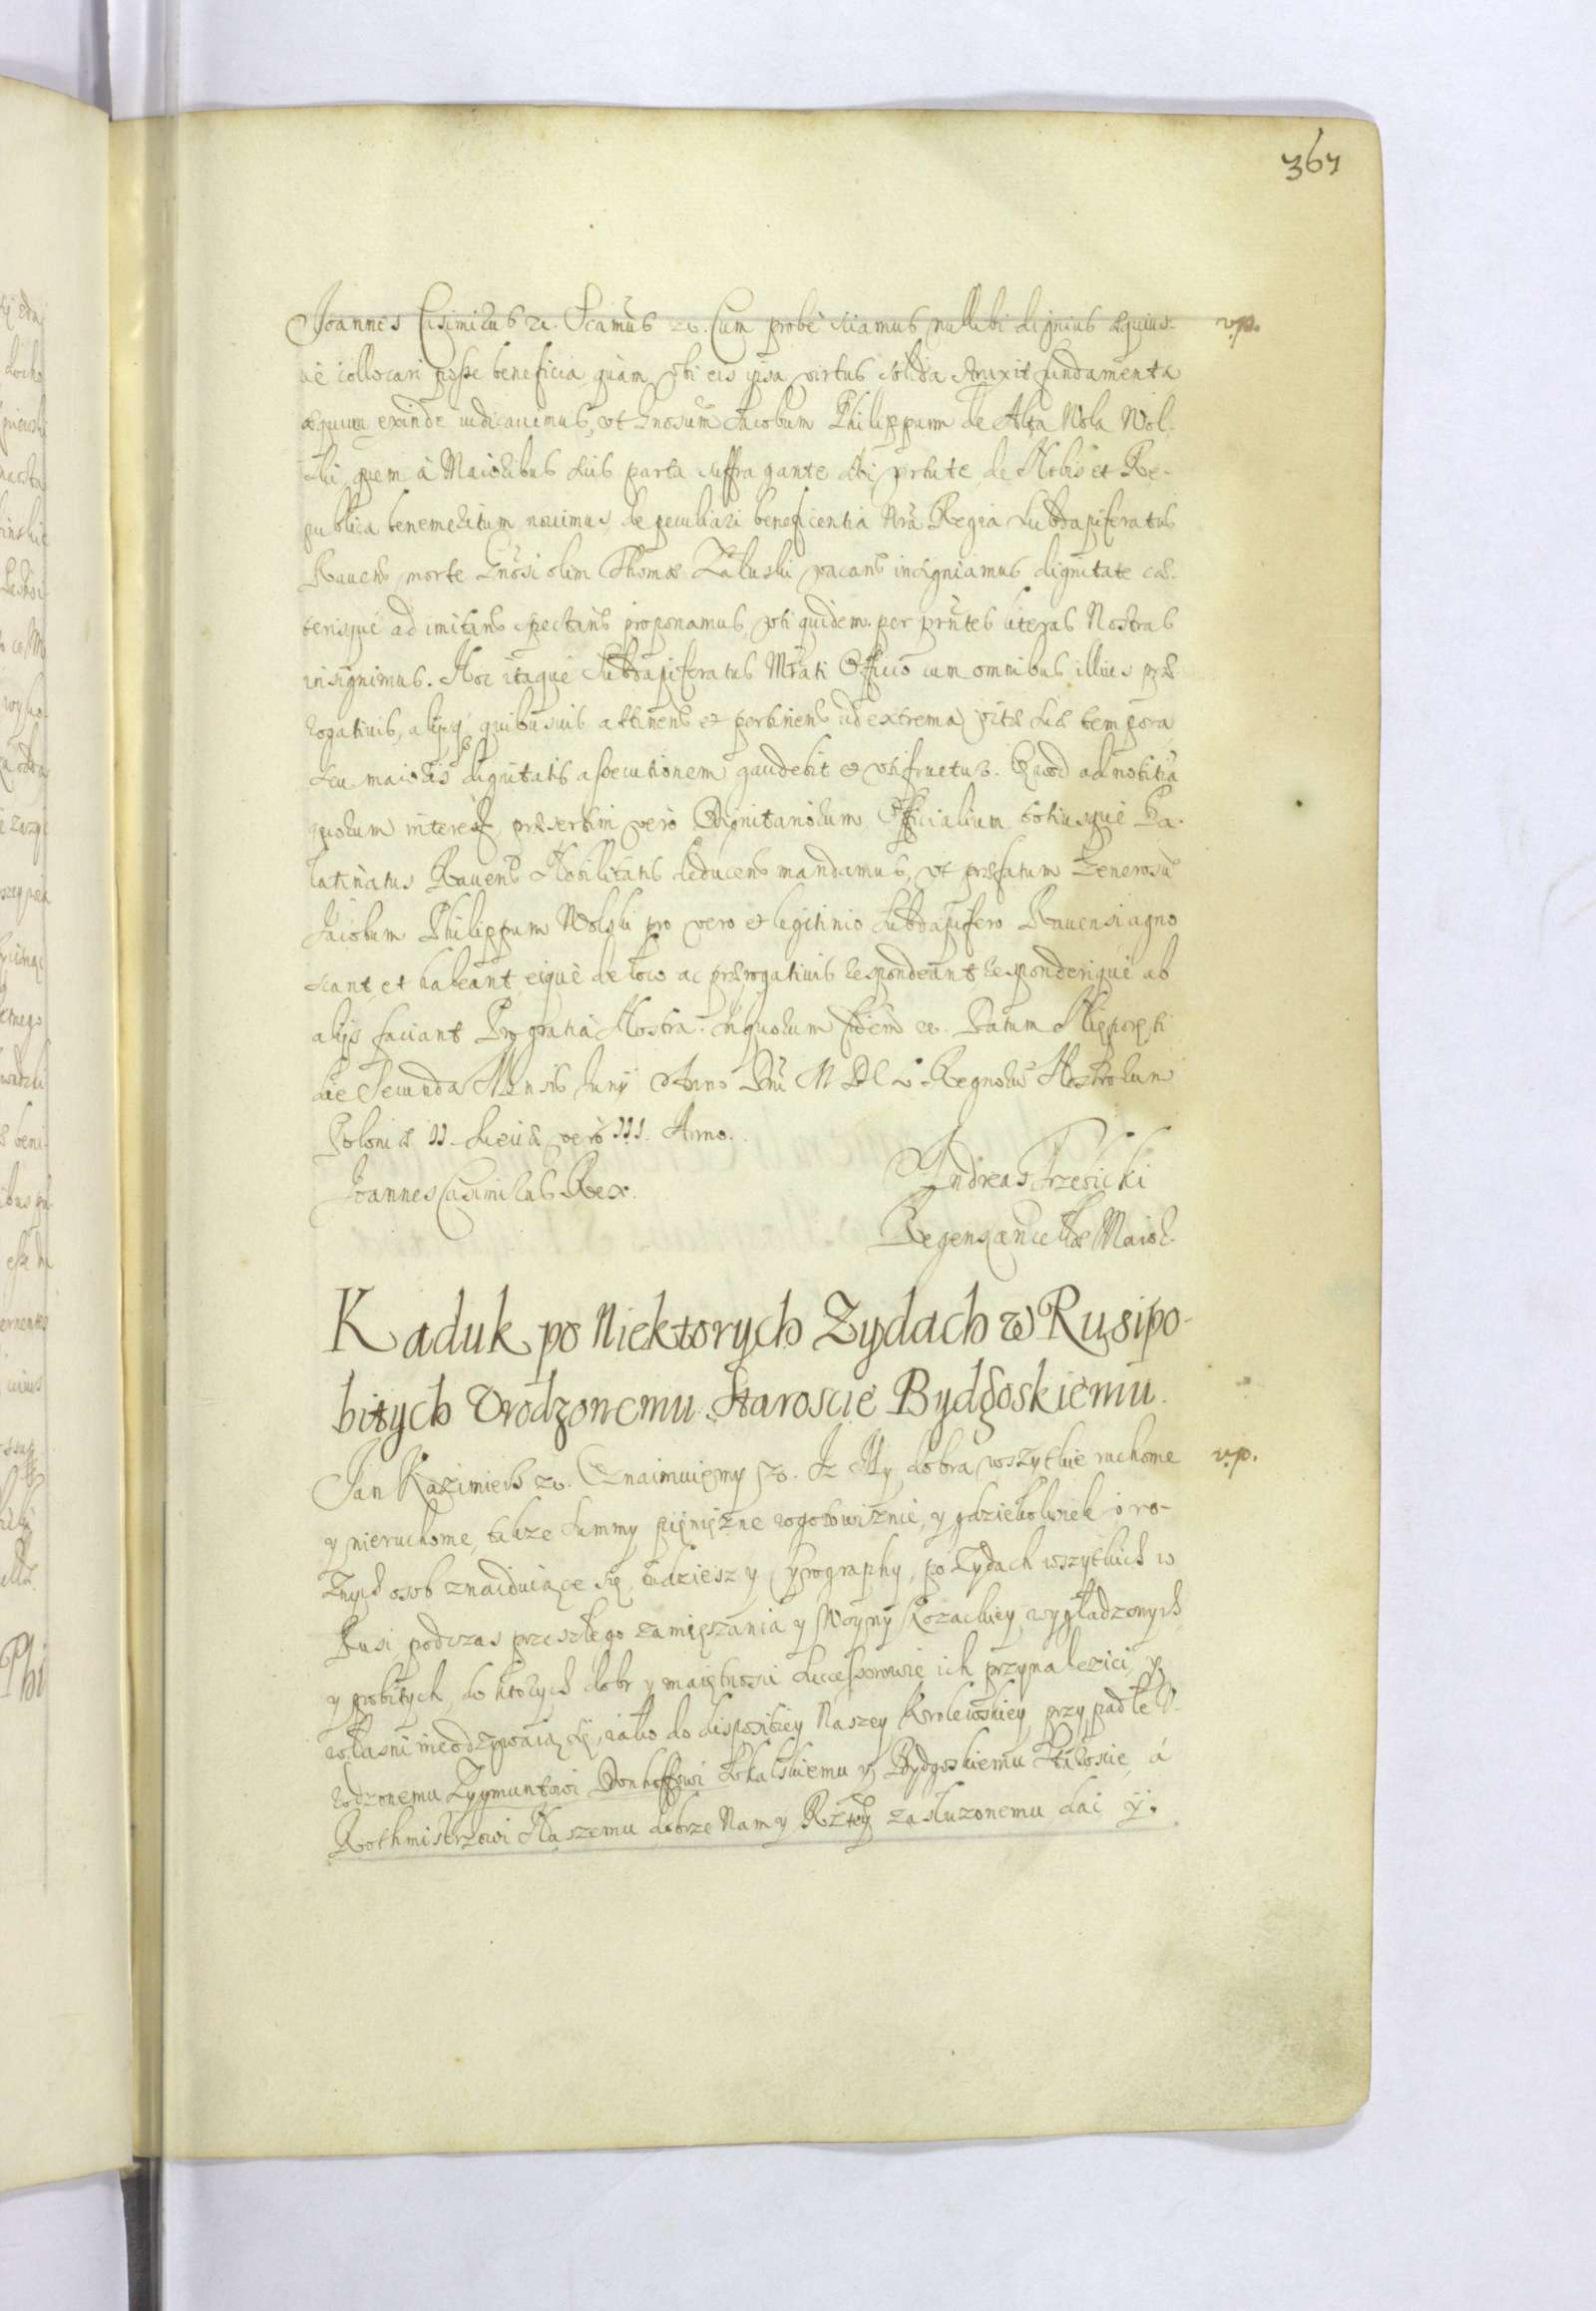 367
Joannes Casimirus etc. Scimus etc. Cum probe sciamus nullibi dignius æquius- v.p.
ve collocari posse beneficia, quàm vbi eis ipsa virtus solida struxit fundamenta
æquum exinde iudicauimus, vt Gnosum Jacobum Philippum de Alta Wola Wol-
ski quem à Maioribus suis parta suffragante sibi vrtute, de Nobis et Re-
publica benemeritum nouimus, de peculiari beneficentia Nrã Regia Subdapiferatus
Rauens morte Gnosi olim Thomæ Zaluski vacans insigniamus dignitate cæ-
terisque ad imitans spectans proponamus, vti quidem per prñtes literas Nostras
insignimus. Hoc itaque Subdapiferatus Mrãti Officio cum omnibus illius præ-
rogatiuis, alijsq quibusuis attinens et pertinens ad extrema vitæ suæ tempora
seu maioris dignitatis assecutionem gaudebit et vtifruetur. Quod ad notitiã
quorum interest, præsertim verò Dignitariorum Officialium totiusque Pa-
latinatus Rauens Nobilitatis deducens mandamus, vt præfatum Generosũ
Jacobum Philippum Wolski pro vero et legitimo Subdapifero Rauensi agno
scant et habeant, eique de loco ac prærogatiuis respondeant responderique ab
alijs faciant Pro gratia Nostra. In quorum fidem etc. Datum
die Secunda Mensis Juny Anno Dni M DC L. Regnorũ Nostrorum
Poloniæ II. Sueciæ verò III. Anno.
Joannes Casimirus Rex. Andreas Trzebicki
Regens Cancellæ Maior.
Kaduk po Niektorych Zydach w Rusi po-
bitych Vrodzonemu Staroscie Bydgoskiemu.
Jan Kazimierz etc. Oznaimuięmy etc. Iz My dobra wszytkie ruchome v.p.
y nieruchome, takze Summy pięnięzne w gotowiznie, y gdziekolwiek v ro-
znych osob znaiduiące się, tudziesz y Cyrography, po Zydach wszytkich w
Rusi podczas przeszlego zamięszania y Woyny Kozackiey wygładzonych
y pobitych, do ktorych dobr y maiętnosci Successorowie ich przynalezici y
własni nieodzywaią się, iako do dispositiey Naszey Krolewskiey przypadłe V-
rodzonemu Zygmuntowi Donhoffowi Sokalskiemu y Bydgoskiemu Staroscie, á
Rothmistrzowi Naszemu dobrze Nam y Rztey zasłuzonemu dac y.